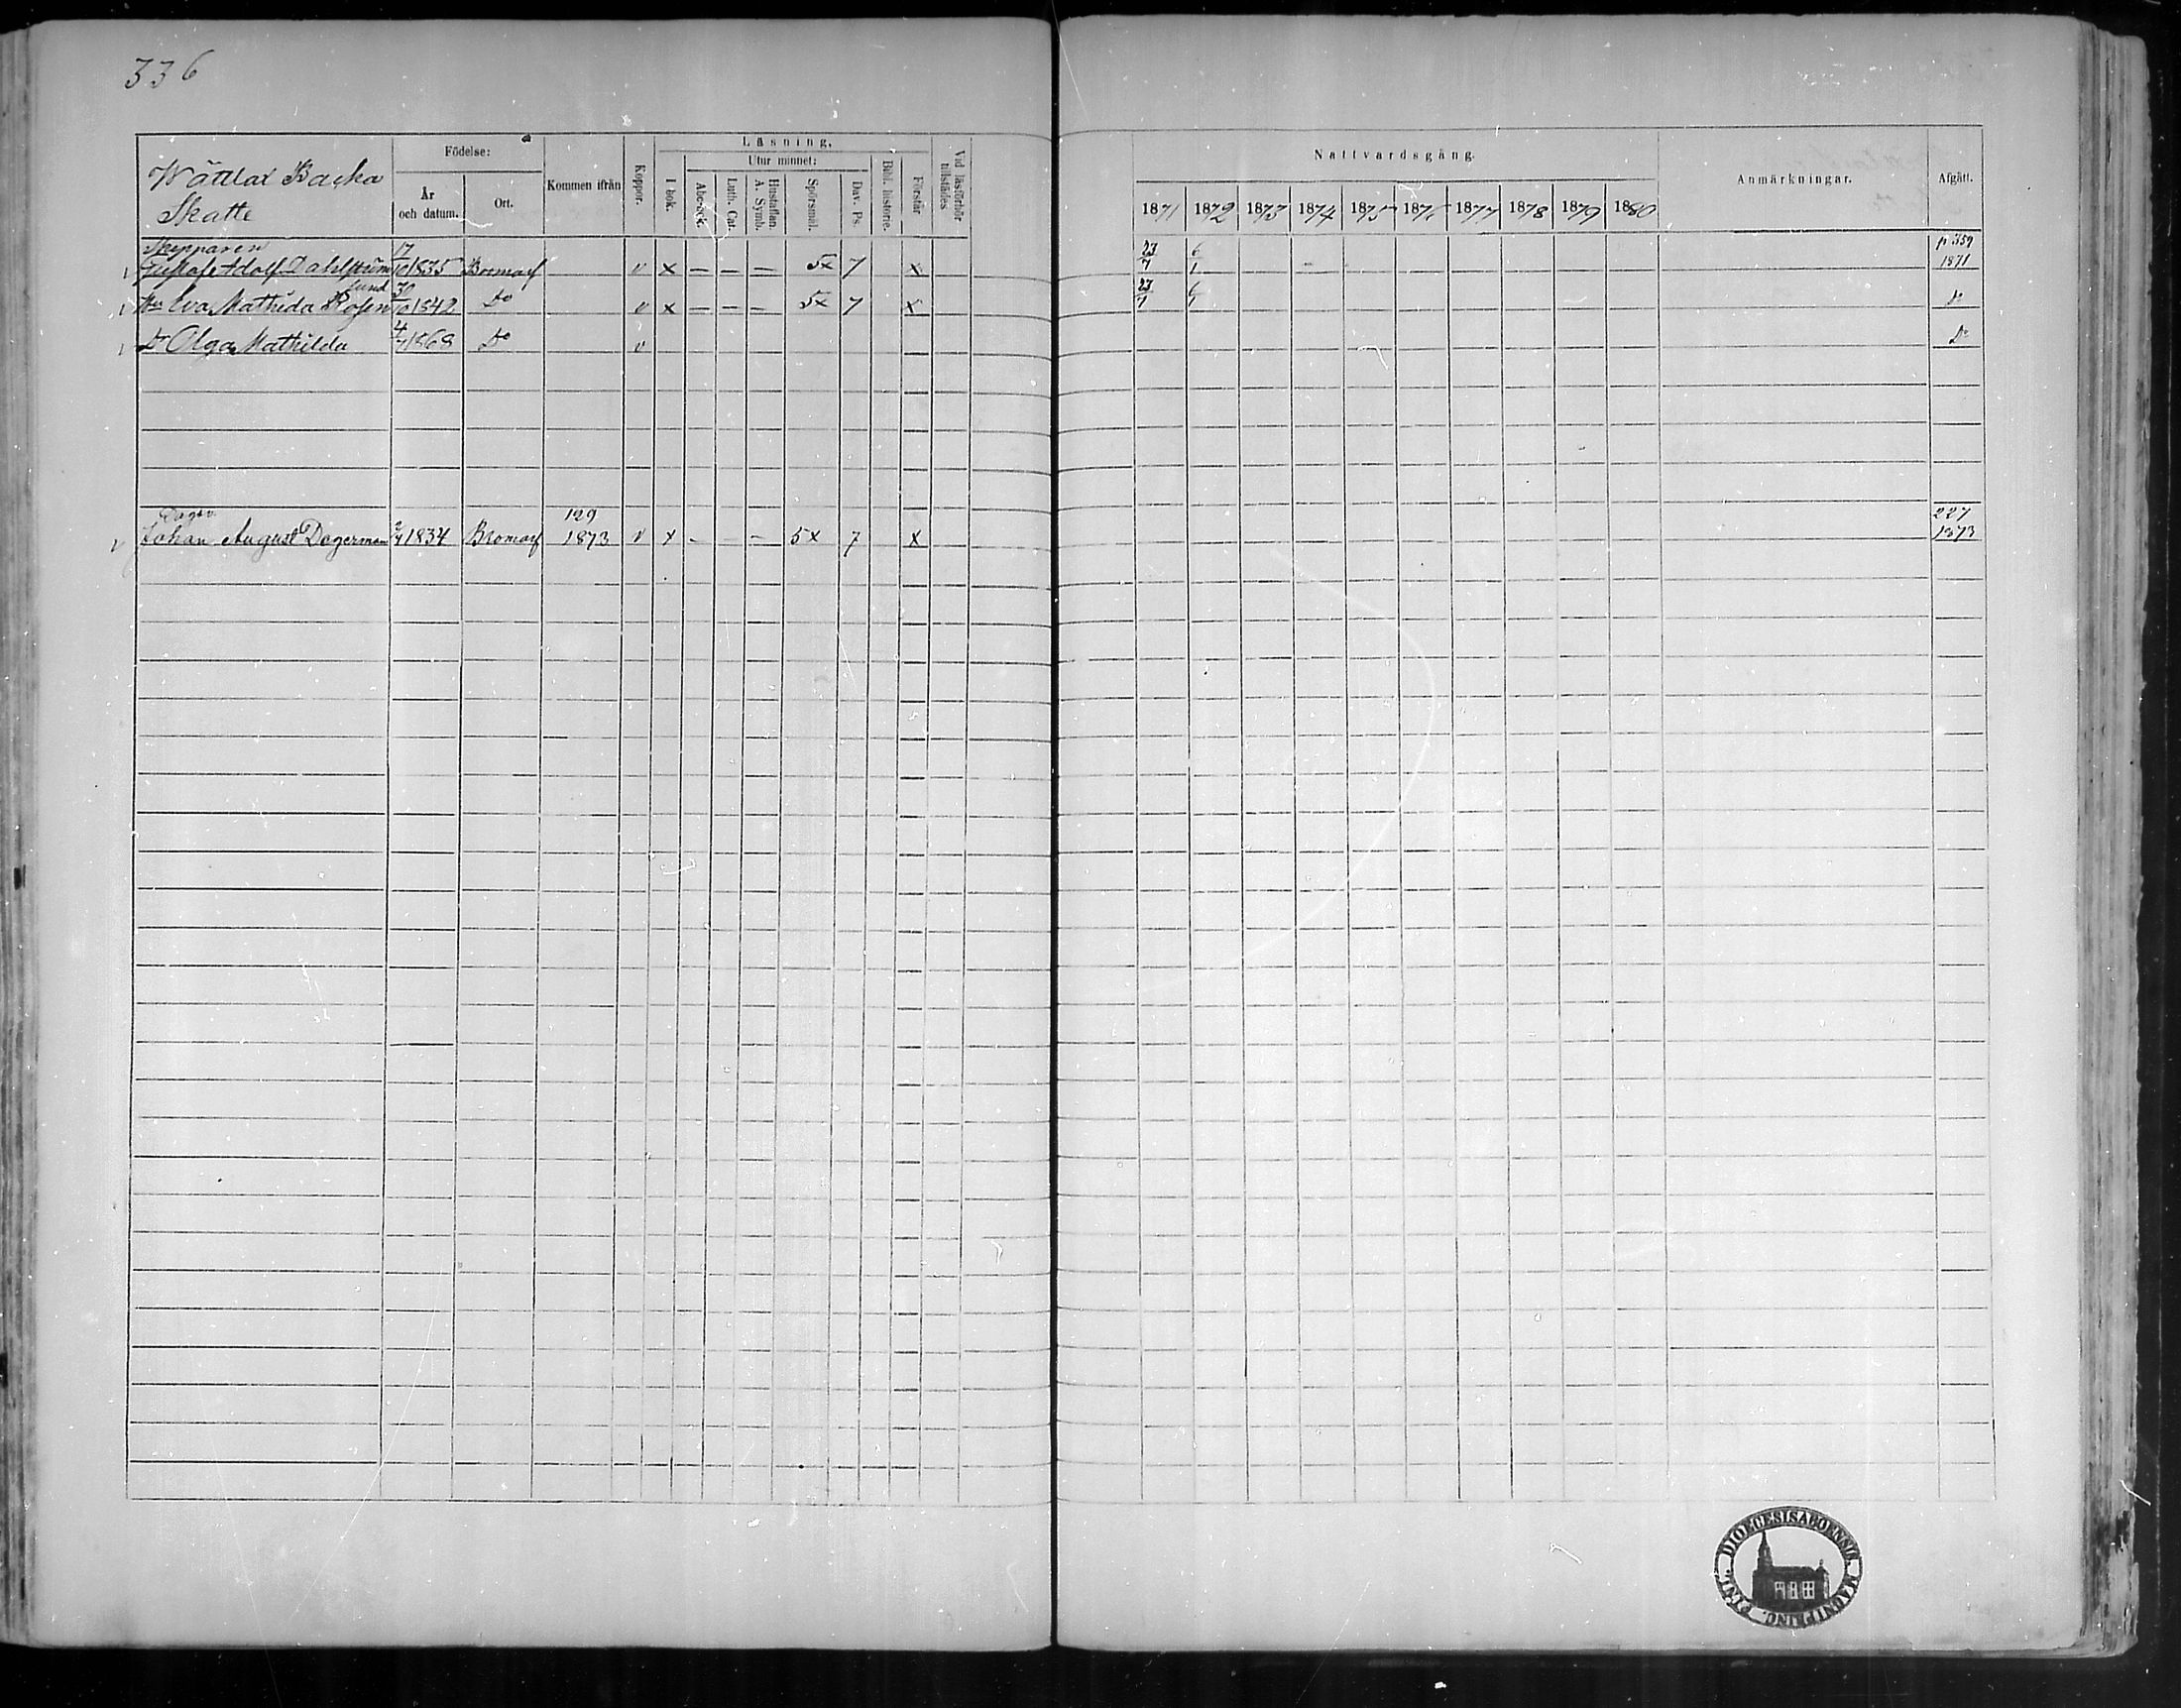 336
Wättlax Backa
Skatte
Födelse:
År
och datum.
Ort.
Kommen ifrån
Koppor.
Läsning.
I bok.
Utur minnet:
Abc-bok.
Luth. Cat.
Hustaflan.
A. Symb.
Spörsmål.
Dav. Ps.
Bibl. historie.
Förstår
Vid läsförhör
tillstädes
Nattvardsgång.
1871 1872 1873 1874 1875 1876 1877 1878 1879 1880
Anmärkningar.
Afgått.
Skepparen 17 23 6 p 359
v Gustaf Adolf Dahlström 10 1835 Bromarf v x – – – 5x 7 x 7 1 1871
lund 30 23 6
v Hu Eva Mathilda Rosen 10 1842 Do v x – – – 5x 7 x 7 1 Do
v Dr Olga Mathilda 4/7 1868 Do v Do
Dagsv. 129 227
v Johan August Dagerman 2/4 1834 Bromarf 1873 v x – – – 5x 7 x 1873
DIOECESIS ABOENSIS. MAGNI PRINC. FINL.